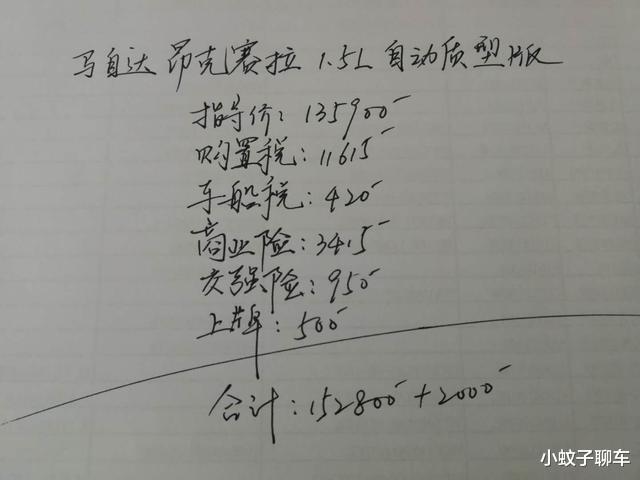 马自达 昂克赛拉 1.5L 自动质型版
指导价: 135900
购置税: 11615
车船税: 420
商业险: 3415
交强险: 950
上牌: 500
合计: 152800 + 2000
小蚊子聊车